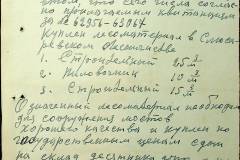 этом, что его числа соглас-
но прилагаемым квитанциям
за № 62956-63067
куплен лесоматериал в Слюсa-
ревском Лесничестве
1. Строительный 25 м²
2. Пиловочник 10 м²
3. Строительный 15 м²
Означенный лесоматериал необходим
для сооружения мостов
хорошего качества и куплен по
государственным ценам сдан
на склад десятника